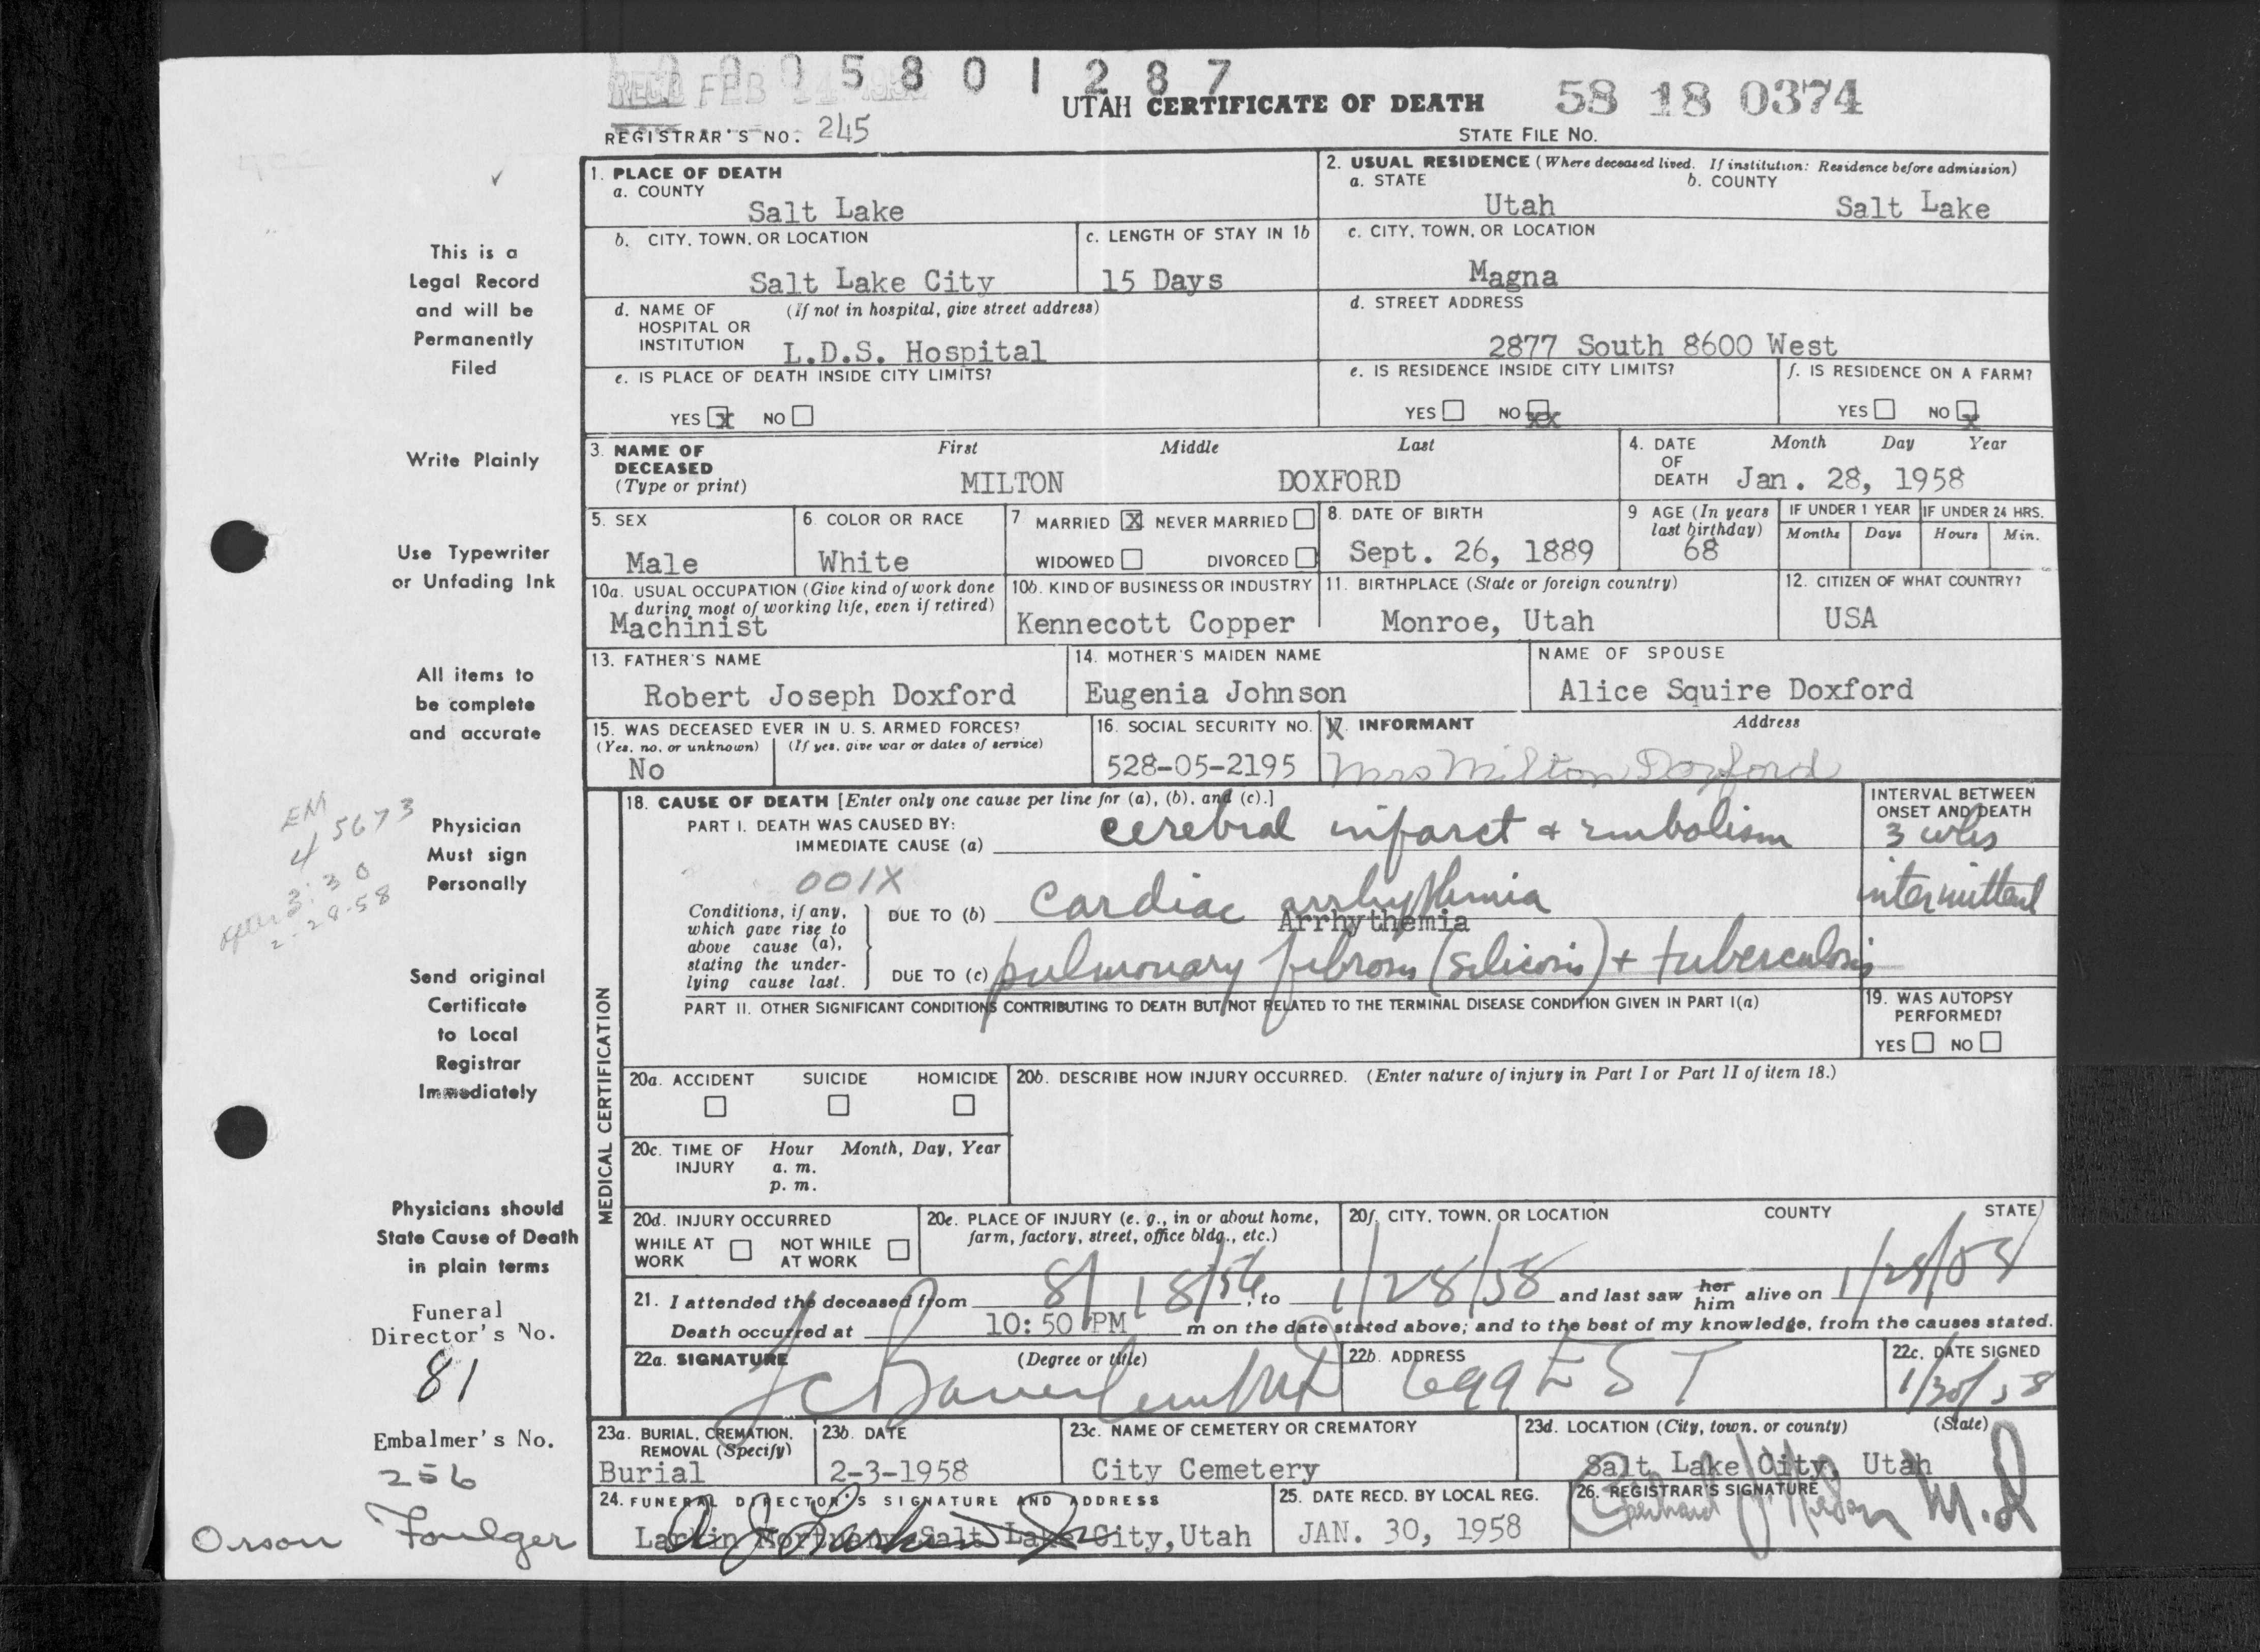 1 0 0 5 8 0 1 2 8 7
REC'D FEB 14 1958
UTAH CERTIFICATE OF DEATH
58 18 0374
REGISTRAR'S NO. 245
STATE FILE NO.
This is a
Legal Record
and will be
Permanently
Filed
Write Plainly
Use Typewriter
or Unfading Ink
All items to
be complete
and accurate
EM
45673
3:30
2-28-58
Physician
Must sign
Personally
Send original
Certificate
to Local
Registrar
Immediately
Physicians should
State Cause of Death
in plain terms
Funeral
Director's No.
81
Embalmer's No.
256
Orson Foulger
1. PLACE OF DEATH
a. COUNTY
Salt Lake
2. USUAL RESIDENCE (Where deceased lived. If institution: Residence before admission)
a. STATE b. COUNTY
Utah Salt Lake
b. CITY, TOWN, OR LOCATION
Salt Lake City
c. LENGTH OF STAY IN 1b
15 Days
c. CITY, TOWN, OR LOCATION
Magna
d. NAME OF (If not in hospital, give street address)
HOSPITAL OR
INSTITUTION L.D.S. Hospital
d. STREET ADDRESS
2877 South 8600 West
e. IS PLACE OF DEATH INSIDE CITY LIMITS?
YES X NO
e. IS RESIDENCE INSIDE CITY LIMITS?
YES NO XX
f. IS RESIDENCE ON A FARM?
YES NO X
3. NAME OF DECEASED (Type or print)
First Middle Last
MILTON DOXFORD
4. DATE OF DEATH
Month Day Year
Jan. 28, 1958
5. SEX
Male
6. COLOR OR RACE
White
7 MARRIED X NEVER MARRIED
WIDOWED DIVORCED
8. DATE OF BIRTH
Sept. 26, 1889
9 AGE (In years
last birthday)
68
IF UNDER 1 YEAR
Months Days
IF UNDER 24 HRS.
Hours Min.
10a. USUAL OCCUPATION (Give kind of work done
during most of working life, even if retired)
Machinist
10b. KIND OF BUSINESS OR INDUSTRY
Kennecott Copper
11. BIRTHPLACE (State or foreign country)
Monroe, Utah
12. CITIZEN OF WHAT COUNTRY?
USA
13. FATHER'S NAME
Robert Joseph Doxford
14. MOTHER'S MAIDEN NAME
Eugenia Johnson
NAME OF SPOUSE
Alice Squire Doxford
15. WAS DECEASED EVER IN U. S. ARMED FORCES?
(Yes, no, or unknown) (If yes, give war or dates of service)
No
16. SOCIAL SECURITY NO.
528-05-2195
17. INFORMANT Address
Mrs Milton Doxford
MEDICAL CERTIFICATION
18. CAUSE OF DEATH [Enter only one cause per line for (a), (b), and (c).]
PART I. DEATH WAS CAUSED BY:
IMMEDIATE CAUSE (a) cerebral infarct + embolism
INTERVAL BETWEEN
ONSET AND DEATH
3 wks
001X
Conditions, if any,
which gave rise to
above cause (a),
stating the under-
lying cause last.
DUE TO (b) cardiac arrhythmia
Arrhythemia
intermittent
DUE TO (c) pulmonary fibrosis (silicosis) + tuberculosis
PART II. OTHER SIGNIFICANT CONDITIONS CONTRIBUTING TO DEATH BUT NOT RELATED TO THE TERMINAL DISEASE CONDITION GIVEN IN PART I(a)
19. WAS AUTOPSY
PERFORMED?
YES NO
20a. ACCIDENT SUICIDE HOMICIDE
20b. DESCRIBE HOW INJURY OCCURRED. (Enter nature of injury in Part I or Part II of item 18.)
20c. TIME OF INJURY
Hour Month, Day, Year
a. m.
p. m.
20d. INJURY OCCURRED
WHILE AT WORK NOT WHILE AT WORK
20e. PLACE OF INJURY (e. g., in or about home,
farm, factory, street, office bldg., etc.)
20f. CITY, TOWN, OR LOCATION COUNTY STATE
21. I attended the deceased from 8/18/56, to 1/28/58 and last saw her him alive on 1/28/58
Death occurred at 10:50 PM m on the date stated above; and to the best of my knowledge, from the causes stated.
22a. SIGNATURE (Degree or title)
22b. ADDRESS
699 E S T
22c. DATE SIGNED
1/30/58
23a. BURIAL, CREMATION,
REMOVAL (Specify)
Burial
23b. DATE
2-3-1958
23c. NAME OF CEMETERY OR CREMATORY
City Cemetery
23d. LOCATION (City, town, or county) (State)
Salt Lake City, Utah
24. FUNERAL DIRECTOR'S SIGNATURE AND ADDRESS
Larkin Mortuary Salt Lake City, Utah
25. DATE RECD. BY LOCAL REG.
JAN. 30, 1958
26. REGISTRAR'S SIGNATURE
M.D